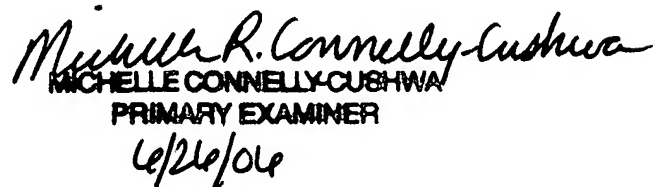 Michelle R. Connelly-Cushwa
MICHELLE CONNELLY-CUSHWA
PRIMARY EXAMINER
6/26/06